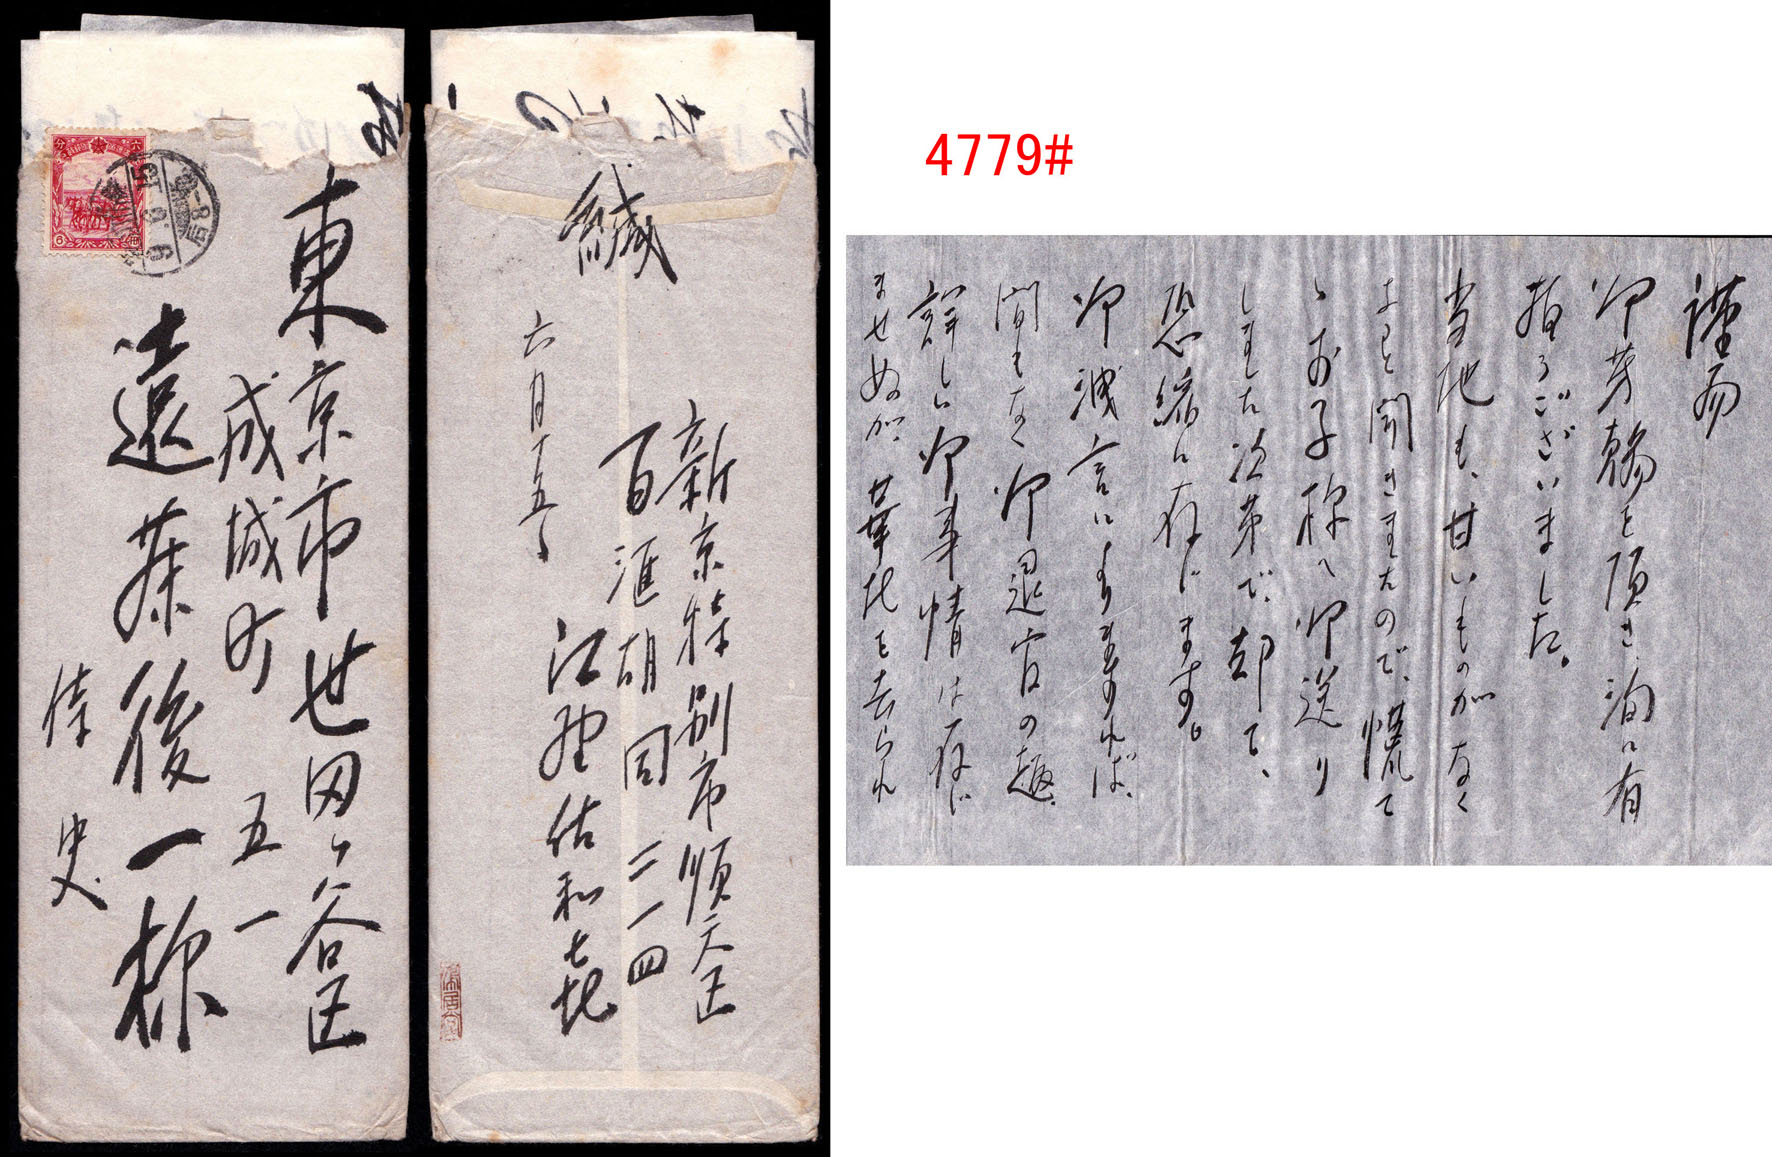 東京市世田ヶ谷区
成城町 五一
遠藤後一様
侍史
六分
緘
六月十五日
新京特別市順天区
百滙胡同 二一四
江 佐和七
4779#
謹而
御芳翰を頂き、洵に有
難うございました。
当地も、甘いものがなく
なると聞きましたので、慌て
ゝお子様へ御送り
しました次第で、却て、
恐縮に存じます。
御洩言によりますれば、
間もなく御退官の趣、
詳しい御事情は存じ
ませぬが、華北を去られ